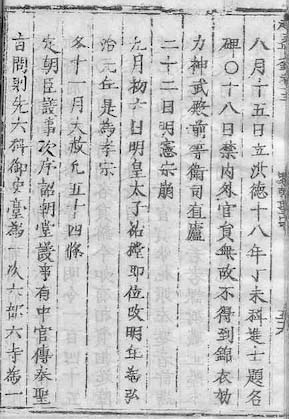 八月十五日立洪德十八年丁未科進士題名
碑○十八日禁内外官員無故不得到錦衣勇
力神武殿前等衛司直廬
二十二日明憲宗崩
九月初六日明皇太子祐樘即位改明年為弘
治元年是為孝宗
冬十一月大赦凡五十四條
定朝臣議事次序詔朝堂議事有中官傳奉聖
旨問則先六科御史臺為一次六部六寺為一